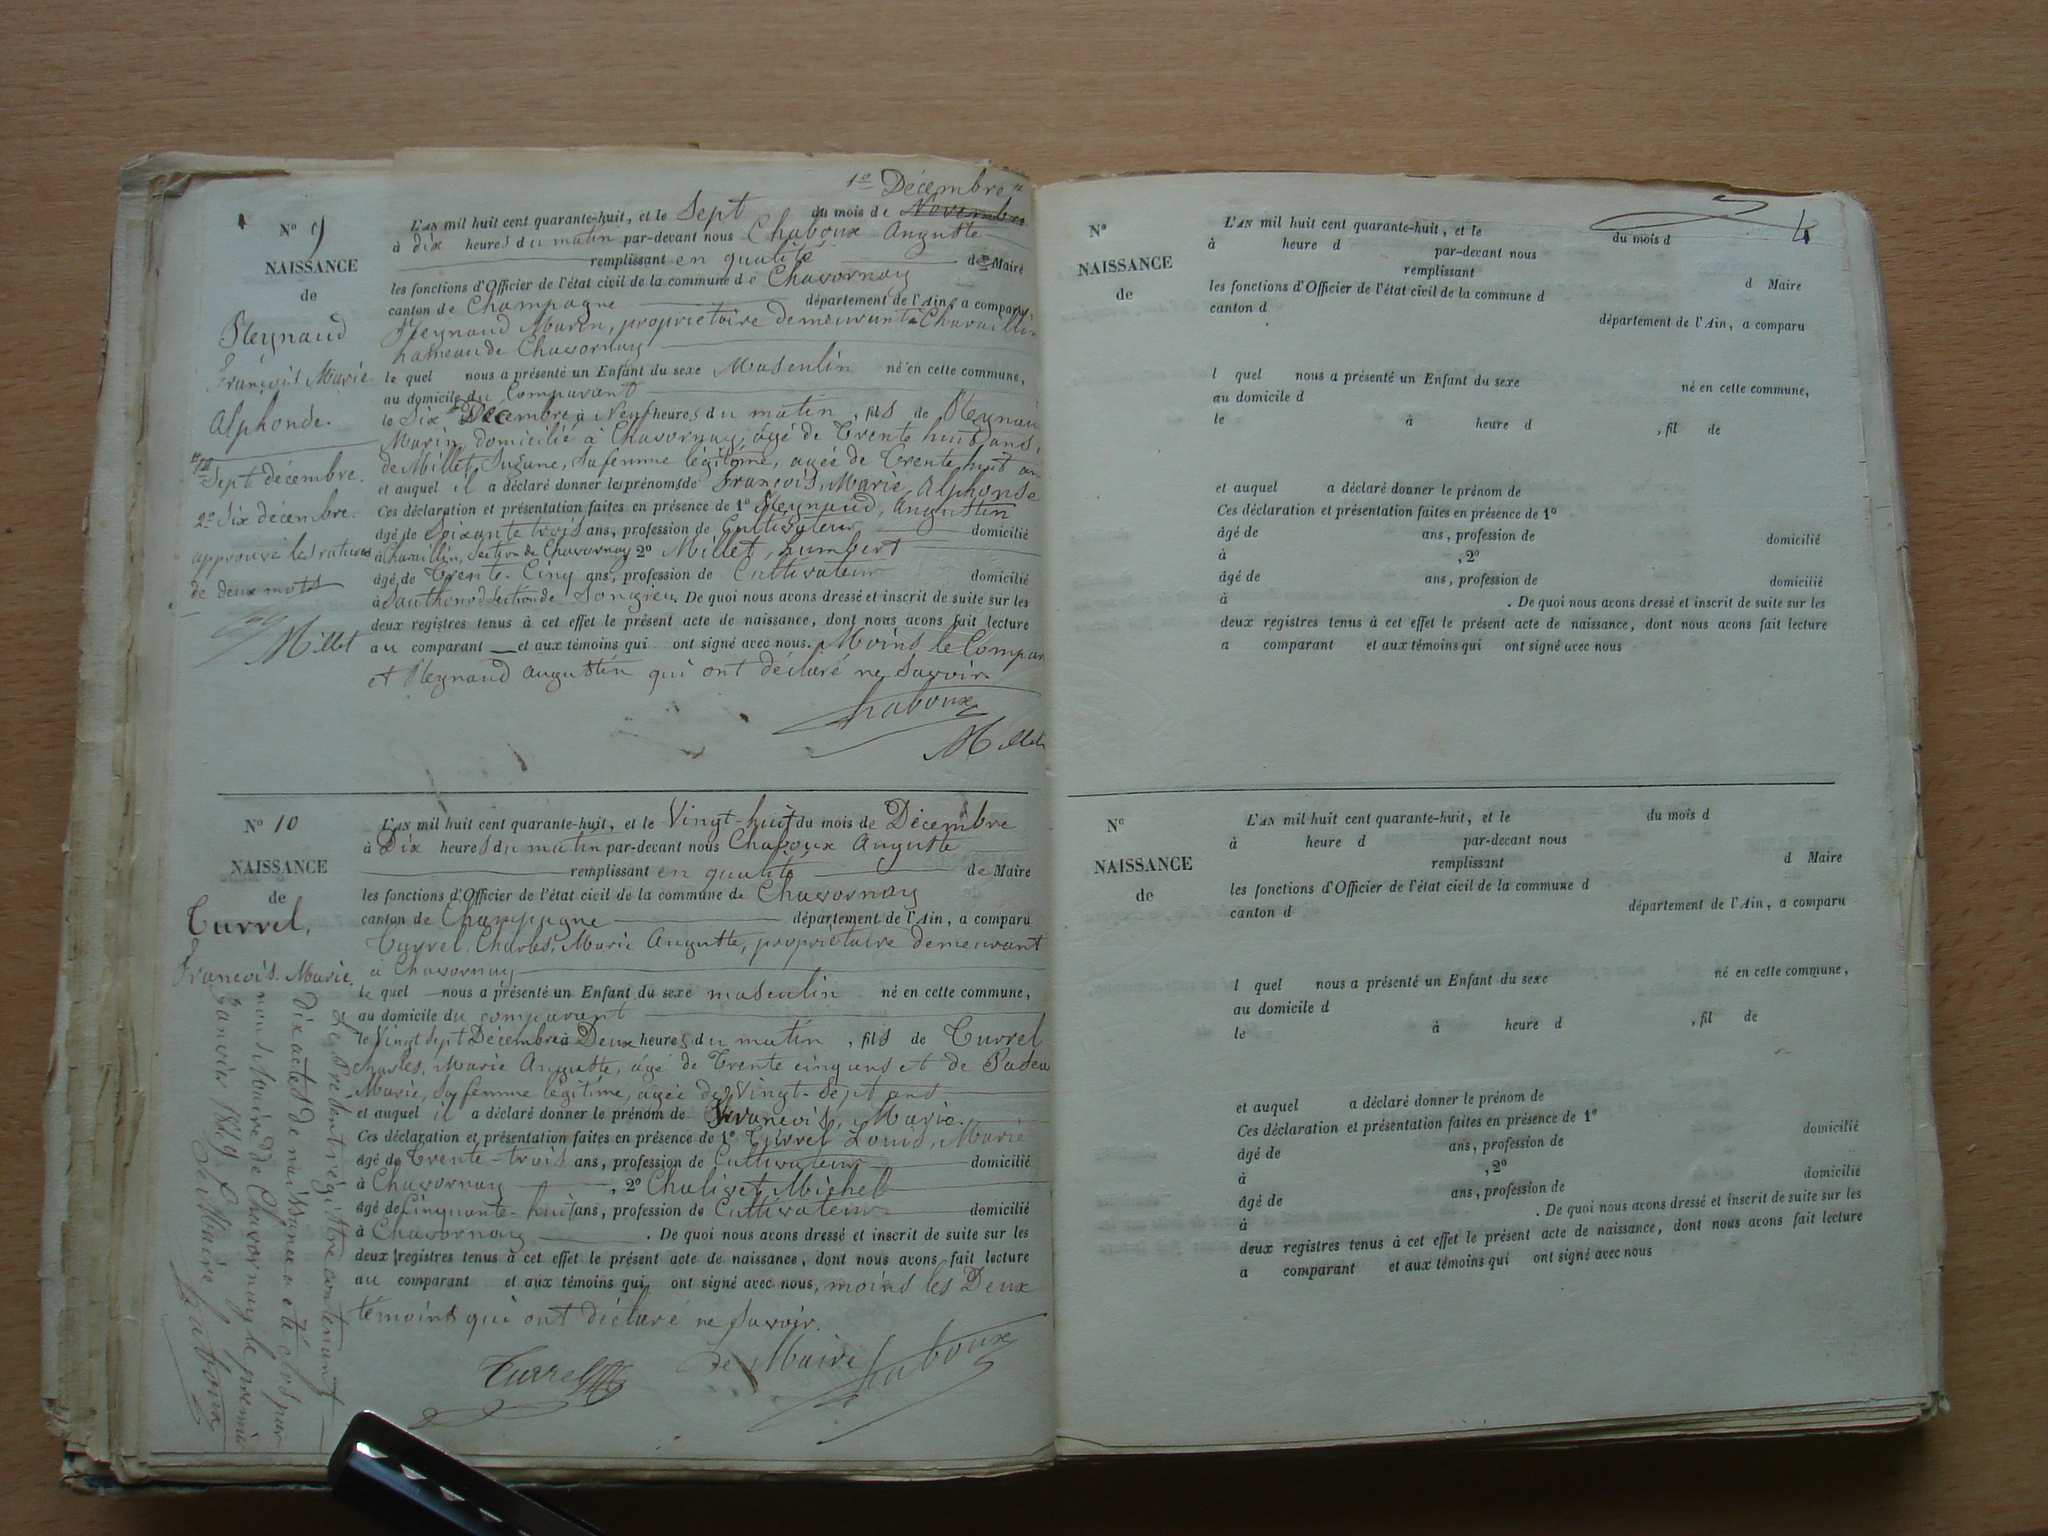 1o Décembre
N° 9
L'AN mil huit cent quarante-huit, et le Sept du mois de Novembre
à dix heures du matin par-devant nous Chaboux Auguste
NAISSANCE
remplissant en qualité de Maire
de
les fonctions d'Officier de l'état civil de la commune de Chavornay
canton de Champagne département de l'Ain, a comparu
Reynaud
Reynaud Marin, propriétaire demeurant à
hameau de Chavornay
François Marie
le quel nous a présenté un Enfant du sexe Masculin né en cette commune,
au domicile du Comparant
Alphonse.
le Six Décembre à Neuf heures du matin, fils de Reynaud
Marin, domicilié à Chavornay, âgé de Trente huit ans,
1o Sept décembre.
de Millet, Suzane, sa femme légitime, agée de Trente huit ans
et auquel il a déclaré donner les prénoms de François, Marie, Alphonse
2o Six décembre.
Ces déclaration et présentation faites en présence de 1° Reynaud, Augustin
âgé de Soixante trois ans, profession de Cultivateur domicilié
approuvé les ratures
à section de Chavornay 2° Millet, humbert
de deux mots
âgé de Trente-Cinq ans, profession de Cultivateur domicilié
à section de Songieu. De quoi nous avons dressé et inscrit de suite sur les
deux registres tenus à cet effet le présent acte de naissance, dont nous avons fait lecture
Millet
au comparant et aux témoins qui ont signé avec nous. Moins le Comparant
et Reynaud augustin qui ont déclaré ne Savoir
Chaboux
Millet
N° 10
L'AN mil huit cent quarante-huit, et le Vingt-huit du mois de Décembre
à Dix heures du matin par-devant nous Chaboux Auguste
NAISSANCE
remplissant en qualité de Maire
de
les fonctions d'Officier de l'état civil de la commune de Chavornay
Turrel,
canton de Champagne département de l'Ain, a comparu
Turrel, Charles, Marie Auguste, propriétaire demeurant
à Chavornay
François. Marie.
le quel nous a présenté un Enfant du sexe masculin né en cette commune,
au domicile du comparant
le Vingt sept Décembre à Deux heures du matin, fils de Turrel
Charles, Marie Auguste, âgé de Trente cinq ans et de
Marie, sa femme légitime, agée de Vingt-Sept ans
et auquel il a déclaré donner le prénom de François, Marie.
Ces déclaration et présentation faites en présence de 1° Turrel Louis, Marie
âgé de Trente-trois ans, profession de Cultivateur domicilié
à Chavornay, 2° Chalivet Michel
âgé de Cinquante-huit ans, profession de Cultivateur domicilié
à Chavornay. De quoi nous avons dressé et inscrit de suite sur les
deux registres tenus à cet effet le présent acte de naissance, dont nous avons fait lecture
au comparant et aux témoins qui ont signé avec nous, moins les Deux
témoins qui ont déclaré ne savoir.
Turrel
Le Maire Chaboux
Le Présent régistre contenant
Dix actes de naissance a été clos par
nous Maire de Chavornay le premier
Janvier 1849
Le Maire
Chaboux
4
N°
L'AN mil huit cent quarante-huit, et le du mois d
à heure d par-devant nous
NAISSANCE
remplissant d Maire
de
les fonctions d'Officier de l'état civil de la commune d
canton d département de l'Ain, a comparu
l quel nous a présenté un Enfant du sexe né en cette commune,
au domicile d
le à heure d , fil de
et auquel a déclaré donner le prénom de
Ces déclaration et présentation faites en présence de 1°
âgé de ans, profession de domicilié
à , 2°
âgé de ans, profession de domicilié
à . De quoi nous avons dressé et inscrit de suite sur les
deux registres tenus à cet effet le présent acte de naissance, dont nous avons fait lecture
a comparant et aux témoins qui ont signé avec nous
N°
L'AN mil huit cent quarante-huit, et le du mois d
à heure d par-devant nous
NAISSANCE
remplissant d Maire
de
les fonctions d'Officier de l'état civil de la commune d
canton d département de l'Ain, a comparu
l quel nous a présenté un Enfant du sexe né en cette commune,
au domicile d
le à heure d , fil de
et auquel a déclaré donner le prénom de
Ces déclaration et présentation faites en présence de 1°
âgé de ans, profession de domicilié
à , 2°
âgé de ans, profession de domicilié
à . De quoi nous avons dressé et inscrit de suite sur les
deux registres tenus à cet effet le présent acte de naissance, dont nous avons fait lecture
a comparant et aux témoins qui ont signé avec nous